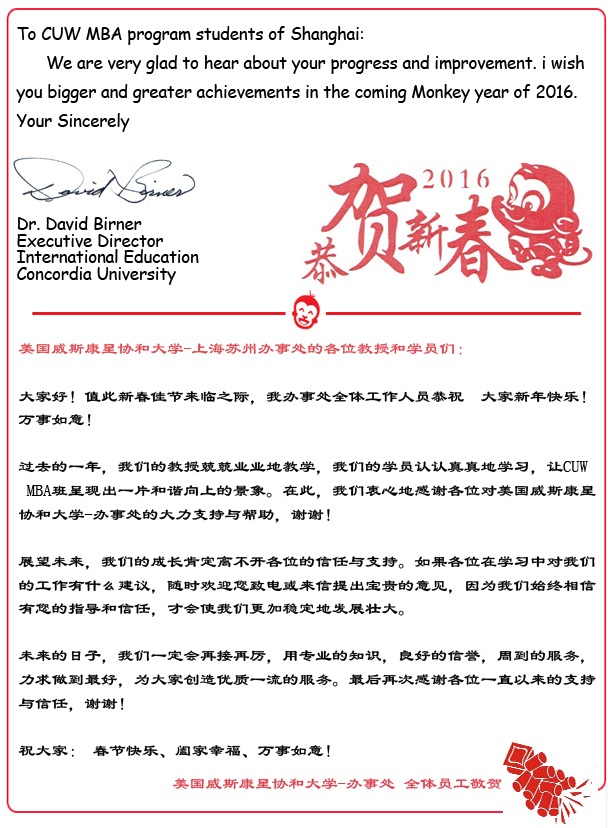 To CUW MBA program students of Shanghai:
We are very glad to hear about your progress and improvement. i wish
you bigger and greater achievements in the coming Monkey year of 2016.
Your Sincerely
David Birner
Dr. David Birner
Executive Director
International Education
Concordia University
2016
恭贺新春
美国威斯康星协和大学-上海苏州办事处的各位教授和学员们：
大家好！值此新春佳节来临之际，我办事处全体工作人员恭祝 大家新年快乐！
万事如意！
过去的一年，我们的教授兢兢业业地教学，我们的学员认认真真地学习，让CUW
MBA班呈现出一片和谐向上的景象。在此，我们衷心地感谢各位对美国威斯康星
协和大学-办事处的大力支持与帮助，谢谢！
展望未来，我们的成长肯定离不开各位的信任与支持。如果各位在学习中对我们
的工作有什么建议，随时欢迎您致电或来信提出宝贵的意见，因为我们始终相信
有您的指导和信任，才会使我们更加稳定地发展壮大。
未来的日子，我们一定会再接再厉，用专业的知识，良好的信誉，周到的服务，
力求做到最好，为大家创造优质一流的服务。最后再次感谢各位一直以来的支持
与信任，谢谢！
祝大家： 春节快乐、阖家幸福、万事如意！
美国威斯康星协和大学-办事处 全体员工敬贺